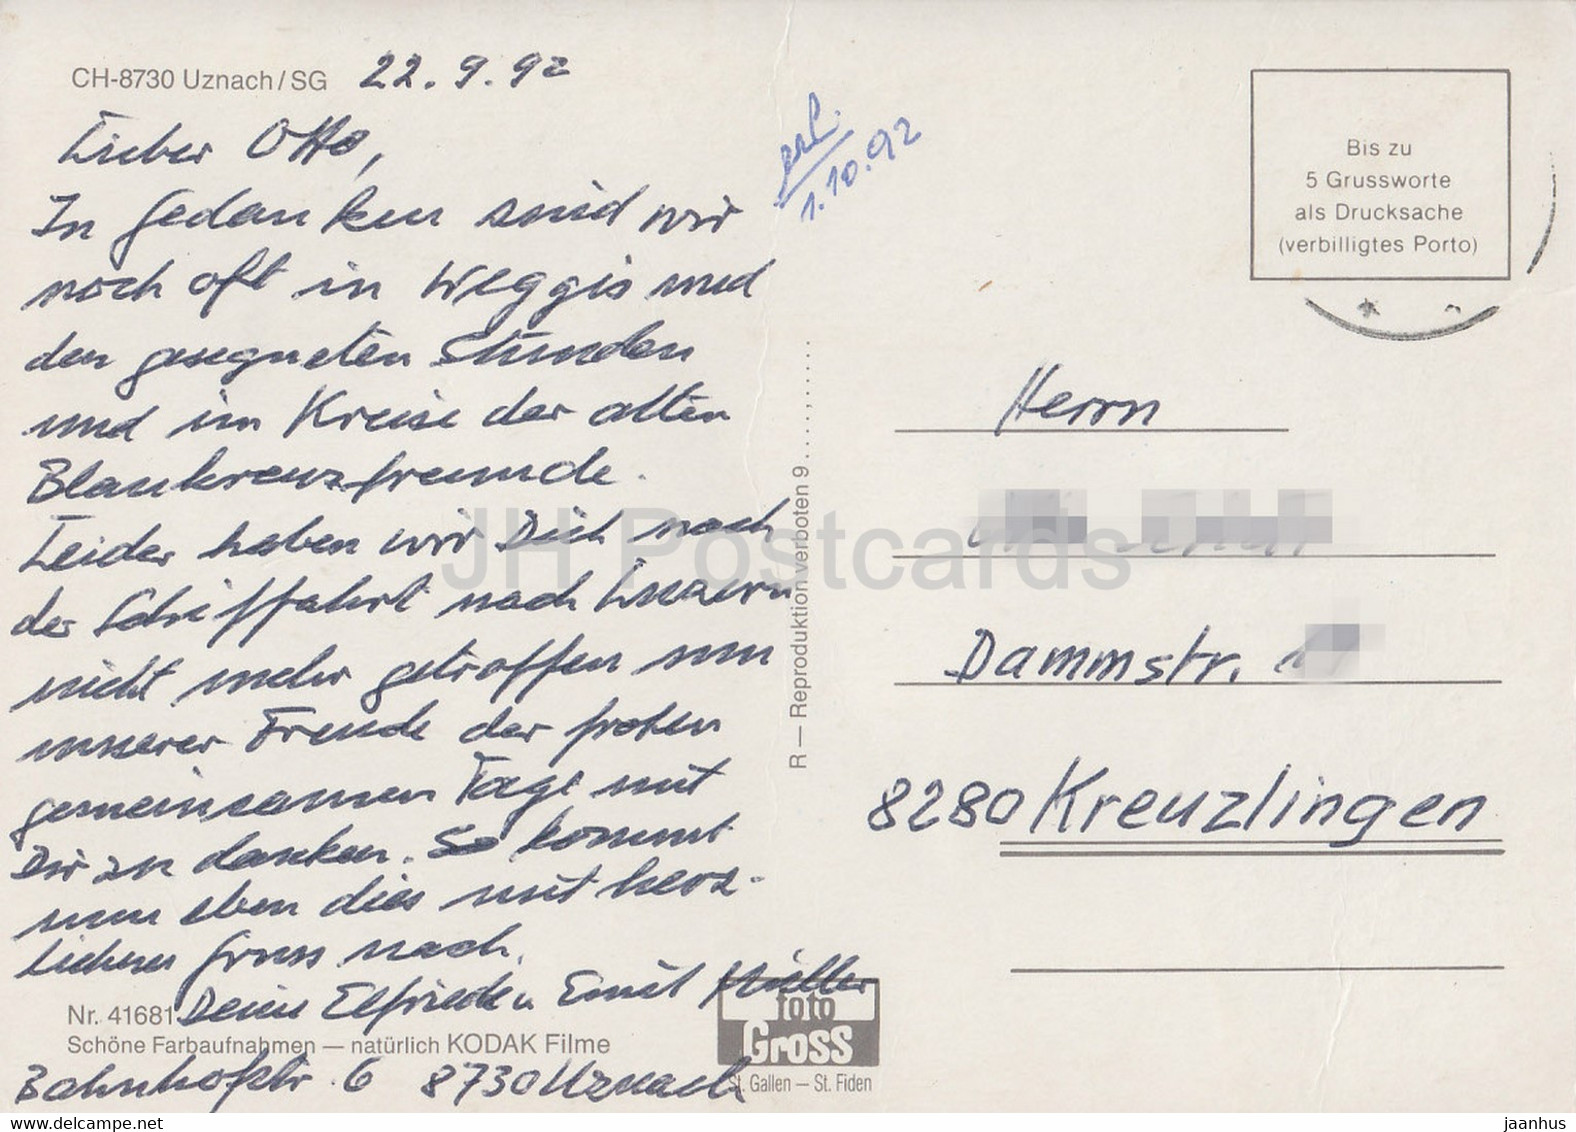 CH-8730 Uznach/SG 22.9.92
Lieber Otto,
In Gedanken sind wir
noch oft in Weggis und
den gesegneten Stunden
und im Kreise der alten
Blaukreuzfreunde.
Leider haben wir Dich nach
der Schiffahrt nach Luzern
nicht mehr getroffen um
unserer Freude der frohen
gemeinsamen Tage mit
Dir zu danken. So kommt
nun eben dies mit herz-
lichem Gruss nach.
Deine Elfriede u Emil Müller
Nr. 41681
Schöne Farbaufnahmen — natürlich KODAK Filme
Bahnhofstr. 6 8730 Uznach
erl.
1.10.92
R — Reproduktion verboten 9
foto
Gross
St. Gallen — St. Fiden
Bis zu
5 Grussworte
als Drucksache
(verbilligtes Porto)
Herrn
Dammstr.
8280 Kreuzlingen
JH Postcards
www.delcampe.net
jaanhus